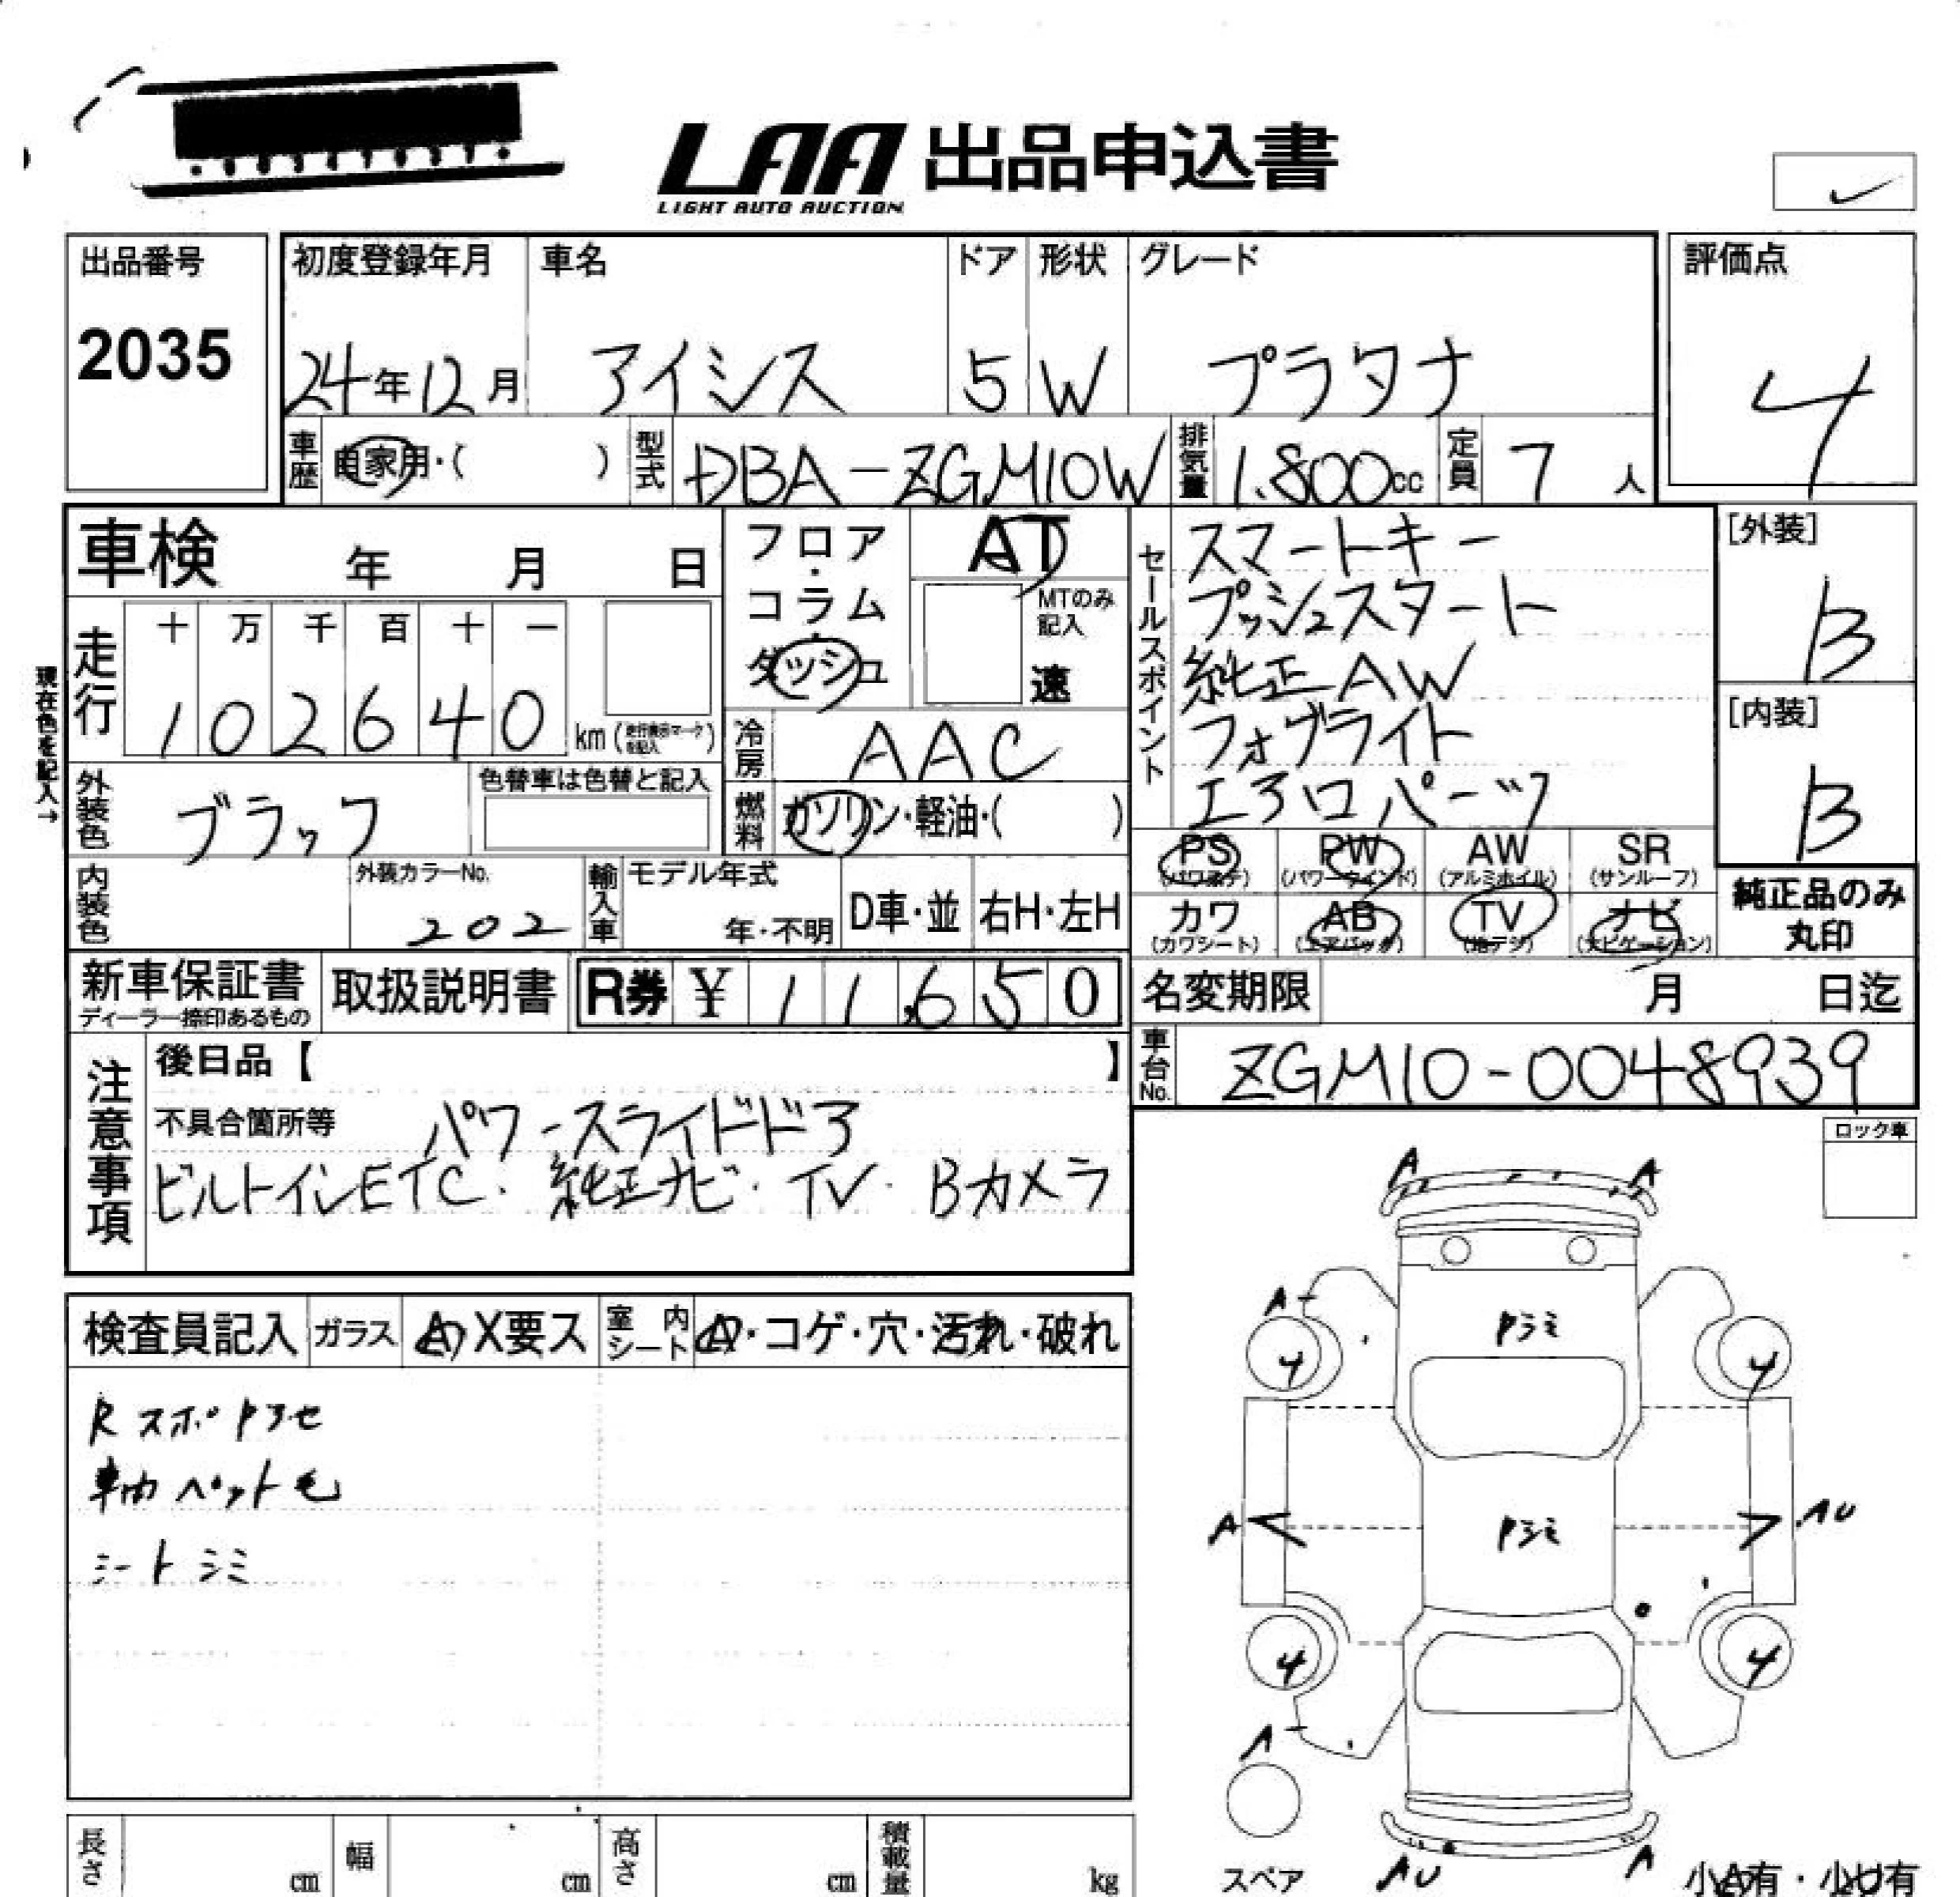 LAA 出品申込書
LIGHT AUTO AUCTION
出品番号
2035
初度登録年月 車名 ドア 形状 グレード
24年12月 アイシス 5 W プラタナ
評価点
4
車歴 自家用・( ) 型式 DBA-ZGM10W 排気量 1.800cc 定員 7人
車検 年 月 日
フロア・コラム・ダッシュ
AT
MTのみ記入
速
セールスポイント
スマートキー
プッシュスタート
純正AW
フォグライト
エアロパーツ
[外装]
B
[内装]
B
現在色を記入→
走行 十 万 千 百 十 一
1 0 2 6 4 0 km
冷房 AAC
外装色 ブラック 色替車は色替と記入
燃料 ガソリン・軽油・( )
PS (パワステ) PW (パワーウィンド) AW (アルミホイル) SR (サンルーフ)
カワ (カワシート) AB (エアバッグ) TV (地デジ) ナビ (ナビゲーション)
純正品のみ
丸印
内装色 外装カラーNo. 202 輸入車 モデル年式 年・不明 D車・並 右H・左H
新車保証書 取扱説明書 R券 ¥ 11,650
ディーラー捺印あるもの
名変期限 月 日迄
車台No. ZGM10-0048939
注意事項
後日品【 】
不具合箇所等 パワースライドドア
ビルトインETC. 純正ナビ・TV・Bカメラ
ロック車
検査員記入 ガラス A X要ス 室内シート A・コゲ・穴・汚れ・破れ
車内 ペット毛
シートシミ
A A
A
4 4
A AU
4 4
A
スペア
AU A
小A有・小U有
長さ cm 幅 cm 高さ cm 積載量 kg